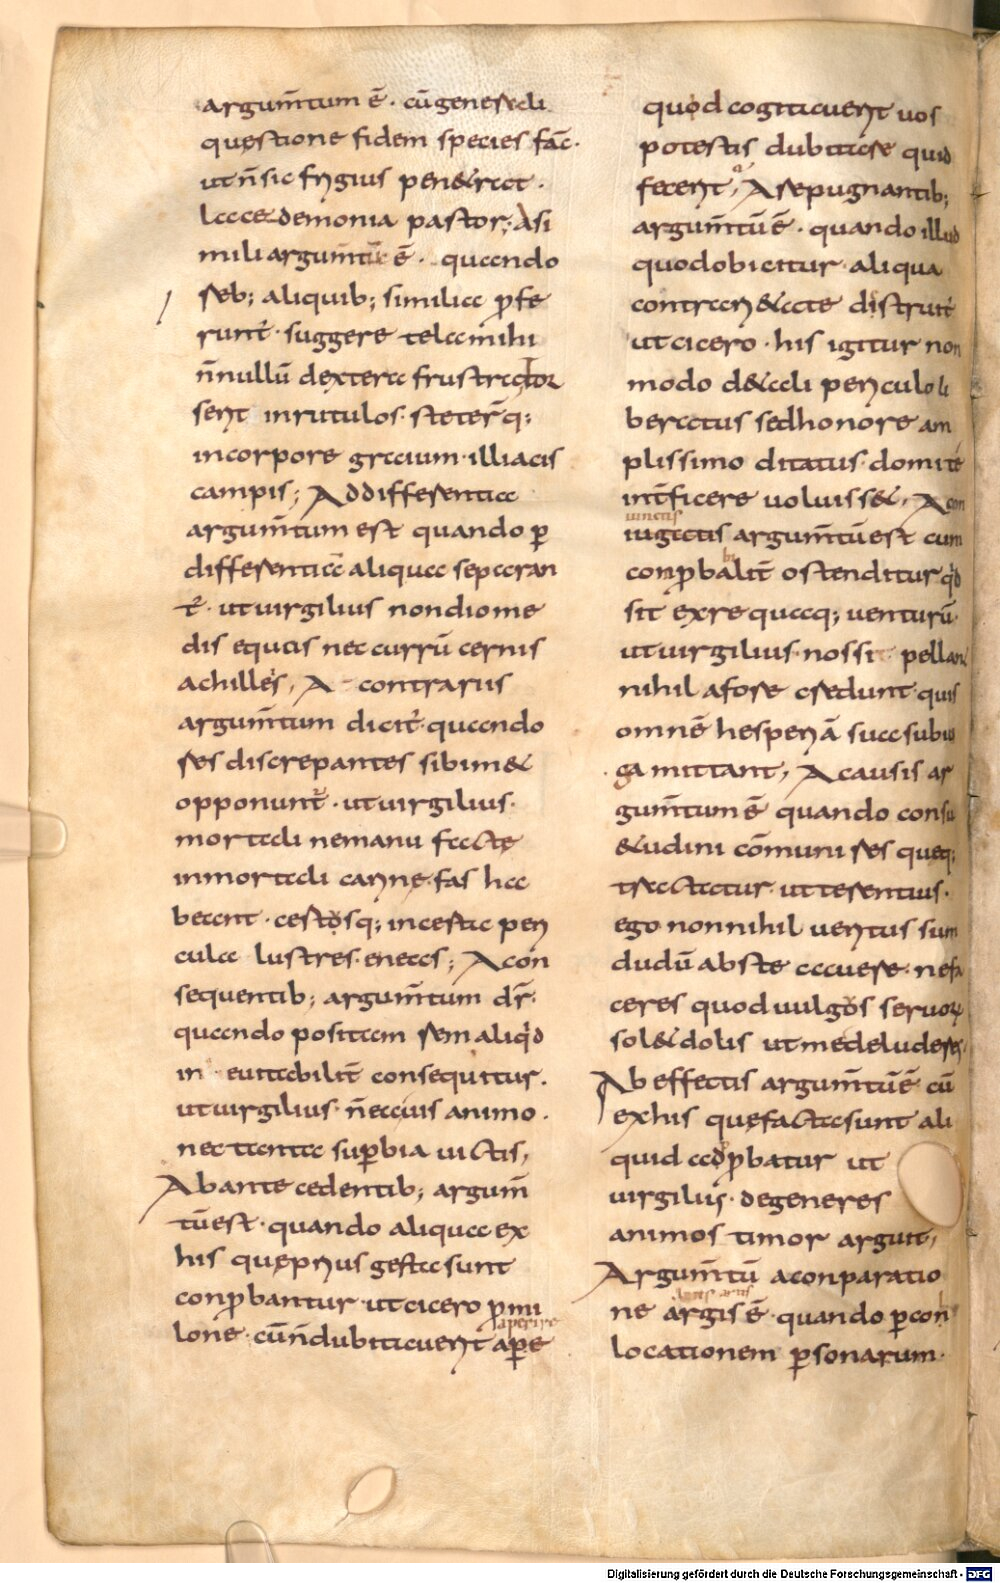 argum̄tum ē. cū generali
questione fidem species fac̄.
ut n̄ sic frygius penetrat.
lacedemonia pastor; A si
mili argum̄tū ē. quando
reb; aliquib; similia ꝓfe
runt̄. suggere tela mihi
n̄ nullū dextera frustra tor
serit in rutulos. steter̄q;
in corpore graium. illiacis
campis; A d differentia
argum̄tum est quando ꝑ
differentiā aliqua separan
t̄. ut uirgilius non diome
dis equos nec currū cernis
achilles, A contrariis
argum̄tum dicit̄. quando
res discrepantes sibimet
opponunt̄. ut uirgilius.
mortali ne manu factę
inmortali carinę fas ha
beant. certosq; in certa peri
cula lustres eneas; A con
sequentib; argum̄tum dr̄.
quando positam rem aliq̇d
in euitabilit̄ consequitur.
ut uirgilius. n̄ ea uis animo.
nec tanta suꝑbia uictis,
Ab ante cedentib; argum̄
tū est. quando aliqua ex
his quę prius gesta sunt
conꝓbantur. ut cicero ꝓ mi
aperire
lone. cū n̄ dubitauerit aꝑe
quod cogitauerit uos
potestis dubitare quid
fecerit, A repugnantib;
argum̄tū ē. quando illud
quod obicitur aliqua
contrarietate distruit̄
ut cicero. his igitur non
modo detali periculo li
beratus sed honore am
plissimo ditatus. domi te
int̄ficere uoluisset, A con
iunctis
iugatis argum̄tū est cum
bi
conꝓbalit̄ ostenditur q̇d
sit ex re quaq; venturū.
ut uirgilius. nos si pellant
nihil afore credunt. quis
omnē hesperiā sua sub iu
ga mittant, A causis ar
gum̄tum ē quando consu
etudini cōmuni res queq;
tractatur. ut terentius.
ego nonnihil ueritus sum
dudū abs te cauere. ne fa
ceres quod uulgos seruorum
solet dolis ut me deluderes,
Ab effectis argum̄tū ē cū
ex his que facta sunt ali
quid adꝓbatur ut
uirgilius. degeneres
animos timor arguit,
Argum̄tū a conparatio
ne argis ē. quando ꝑ con
locationem ꝑsonarum.
Digitalisierung gefördert durch die Deutsche Forschungsgemeinschaft - DFG